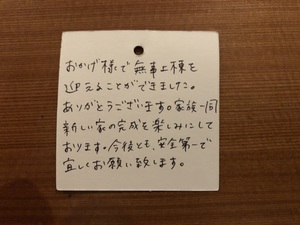 おかげ様で無事上棟を
迎えることができました。
ありがとうございます。家族一同
新しい家の完成を楽しみにして
おります。今後とも、安全第一で
宜しくお願い致します。